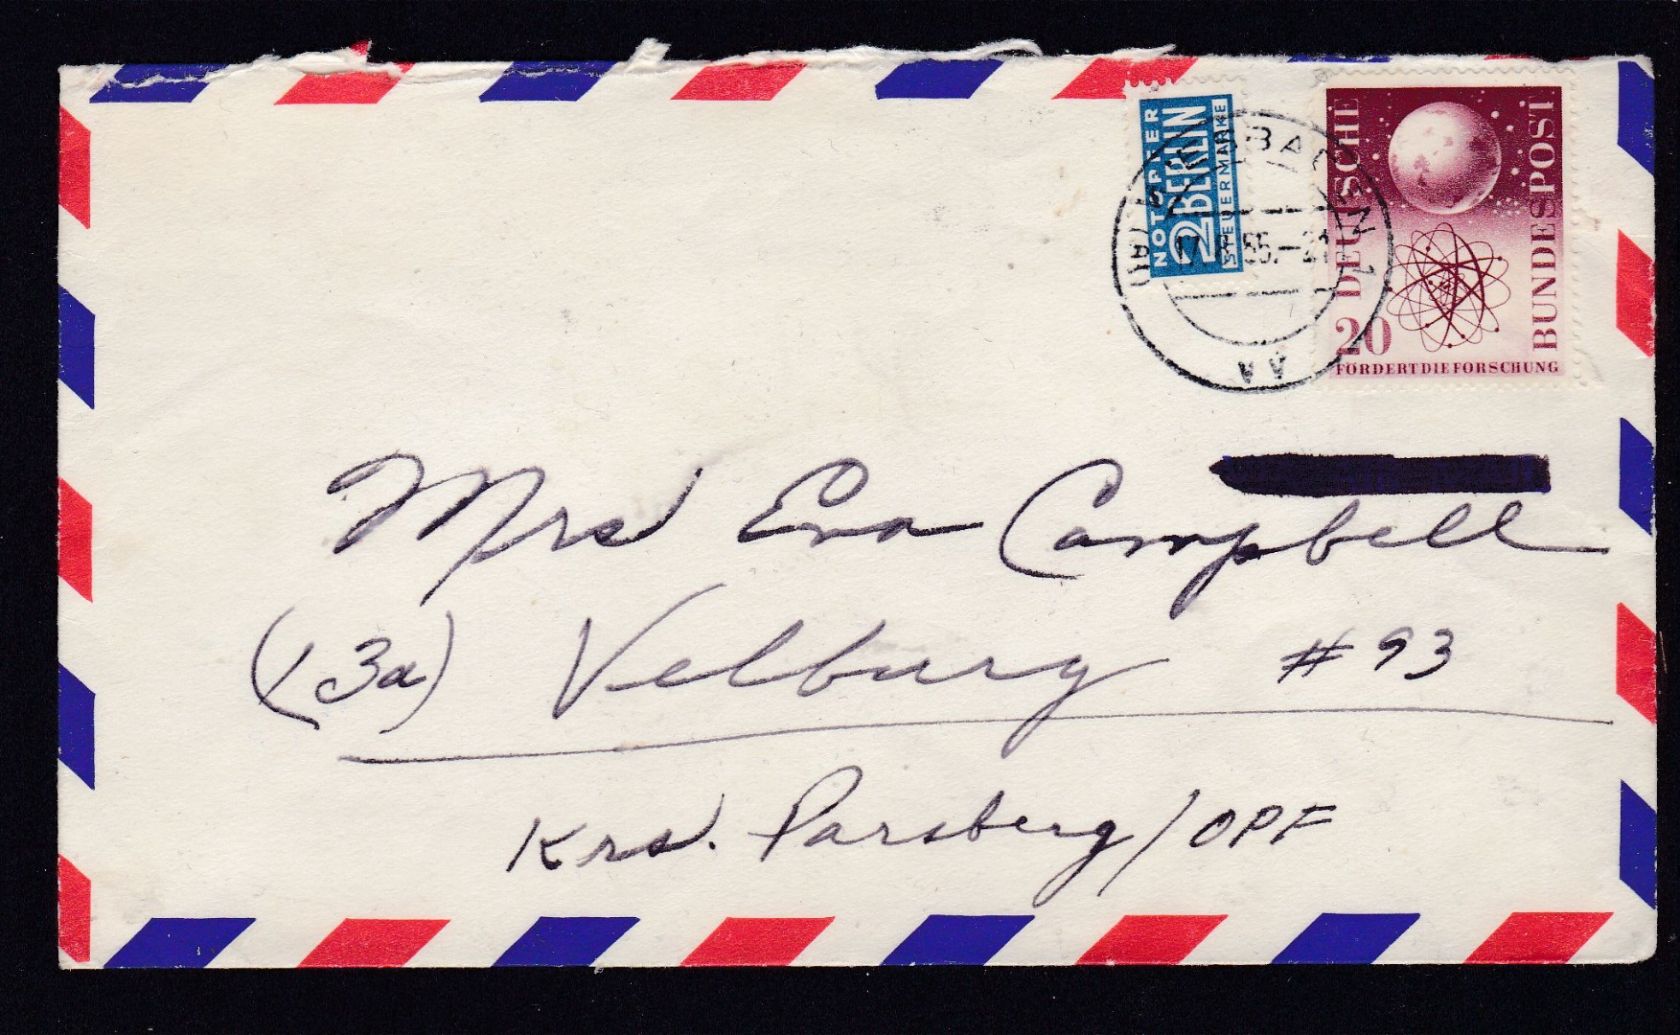 NOTOPFER
2 BERLIN
STEUERMARKE
DEUTSCHE
BUNDESPOST
20
FÖRDERT DIE FORSCHUNG
AA
Mrs Eva Campbell
(13a) Velburg # 93
Krs. Parsberg/OPF